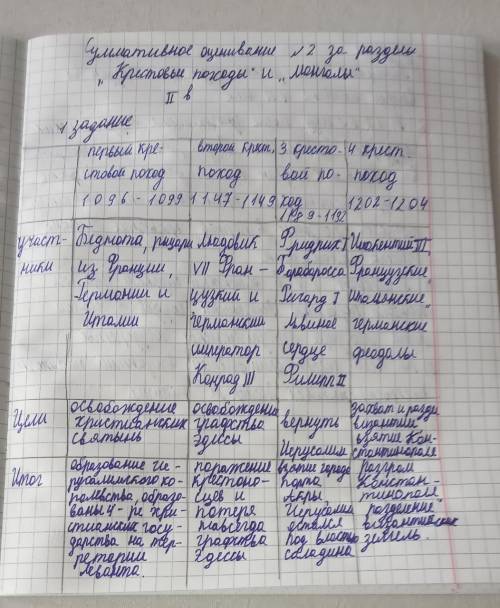 Суммативное оценивание №2 за разделы
"Крестовые походы" и "Монголы"
II в
1 задание
первый кре-
стовой поход
1096-1099
второй крест.
поход
1147-1149
3 кресто-
вой по-
ход
1189-1192
4 крест.
поход
1202-1204
участ-
ники
Беднота, рыцари
из Франции,
Германии и
Италии
Людовик
VII Фран-
цузкий и
германский
император
Конрад III
Фридрих I
Барбаросса
Ричард I
Львиное
сердце
Филипп II
Инокентий III,
Французские,
Итальянские,
германские
феодалы
Цели
освобождение
христианских
святынь
освобождение
графства
Эдессы
вернуть
Иерусалим
захват и раздел
Византии
взятие Кон-
стантинополя
Итог
образование Ие-
русалимского ко-
ролевства, образо-
ваны 4-ре хри-
стианских госу-
дарства на тер-
ретории
Леванта.
поражение
крестоно-
сцев и
потеря
навсегда
графства
Эдессы
взятие города
порта
Акры,
Иерусалим
остался
под властю
Саладина
разгром
Констан-
тинополя,
разделение
византийских
земель.